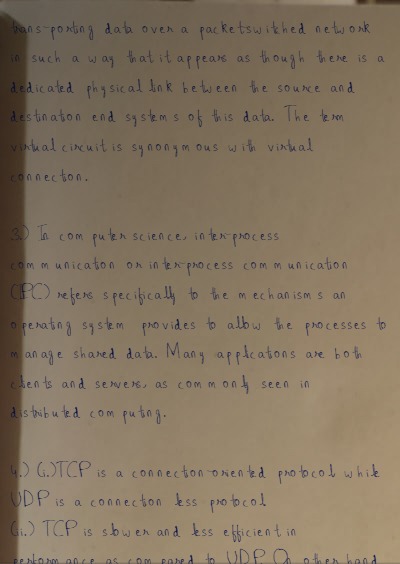 trans-porting data over a packet switched network
in such a way that it appears as though there is a
dedicated physical link between the source and
destination end systems of this data. The term
virtual circuit is synonymous with virtual
connection.
3.) In computer science, inter-process
communication or inter-process communication
(IPC) refers specifically to the mechanisms an
operating system provides to allow the processes to
manage shared data. Many applications are both
clients and servers, as commonly seen in
distributed computing.
4.) (i.) TCP is a connection-oriented protocol while
UDP is a connection less protocol
(ii.) TCP is slower and less efficient in
performance as compared to UDP. On other hand